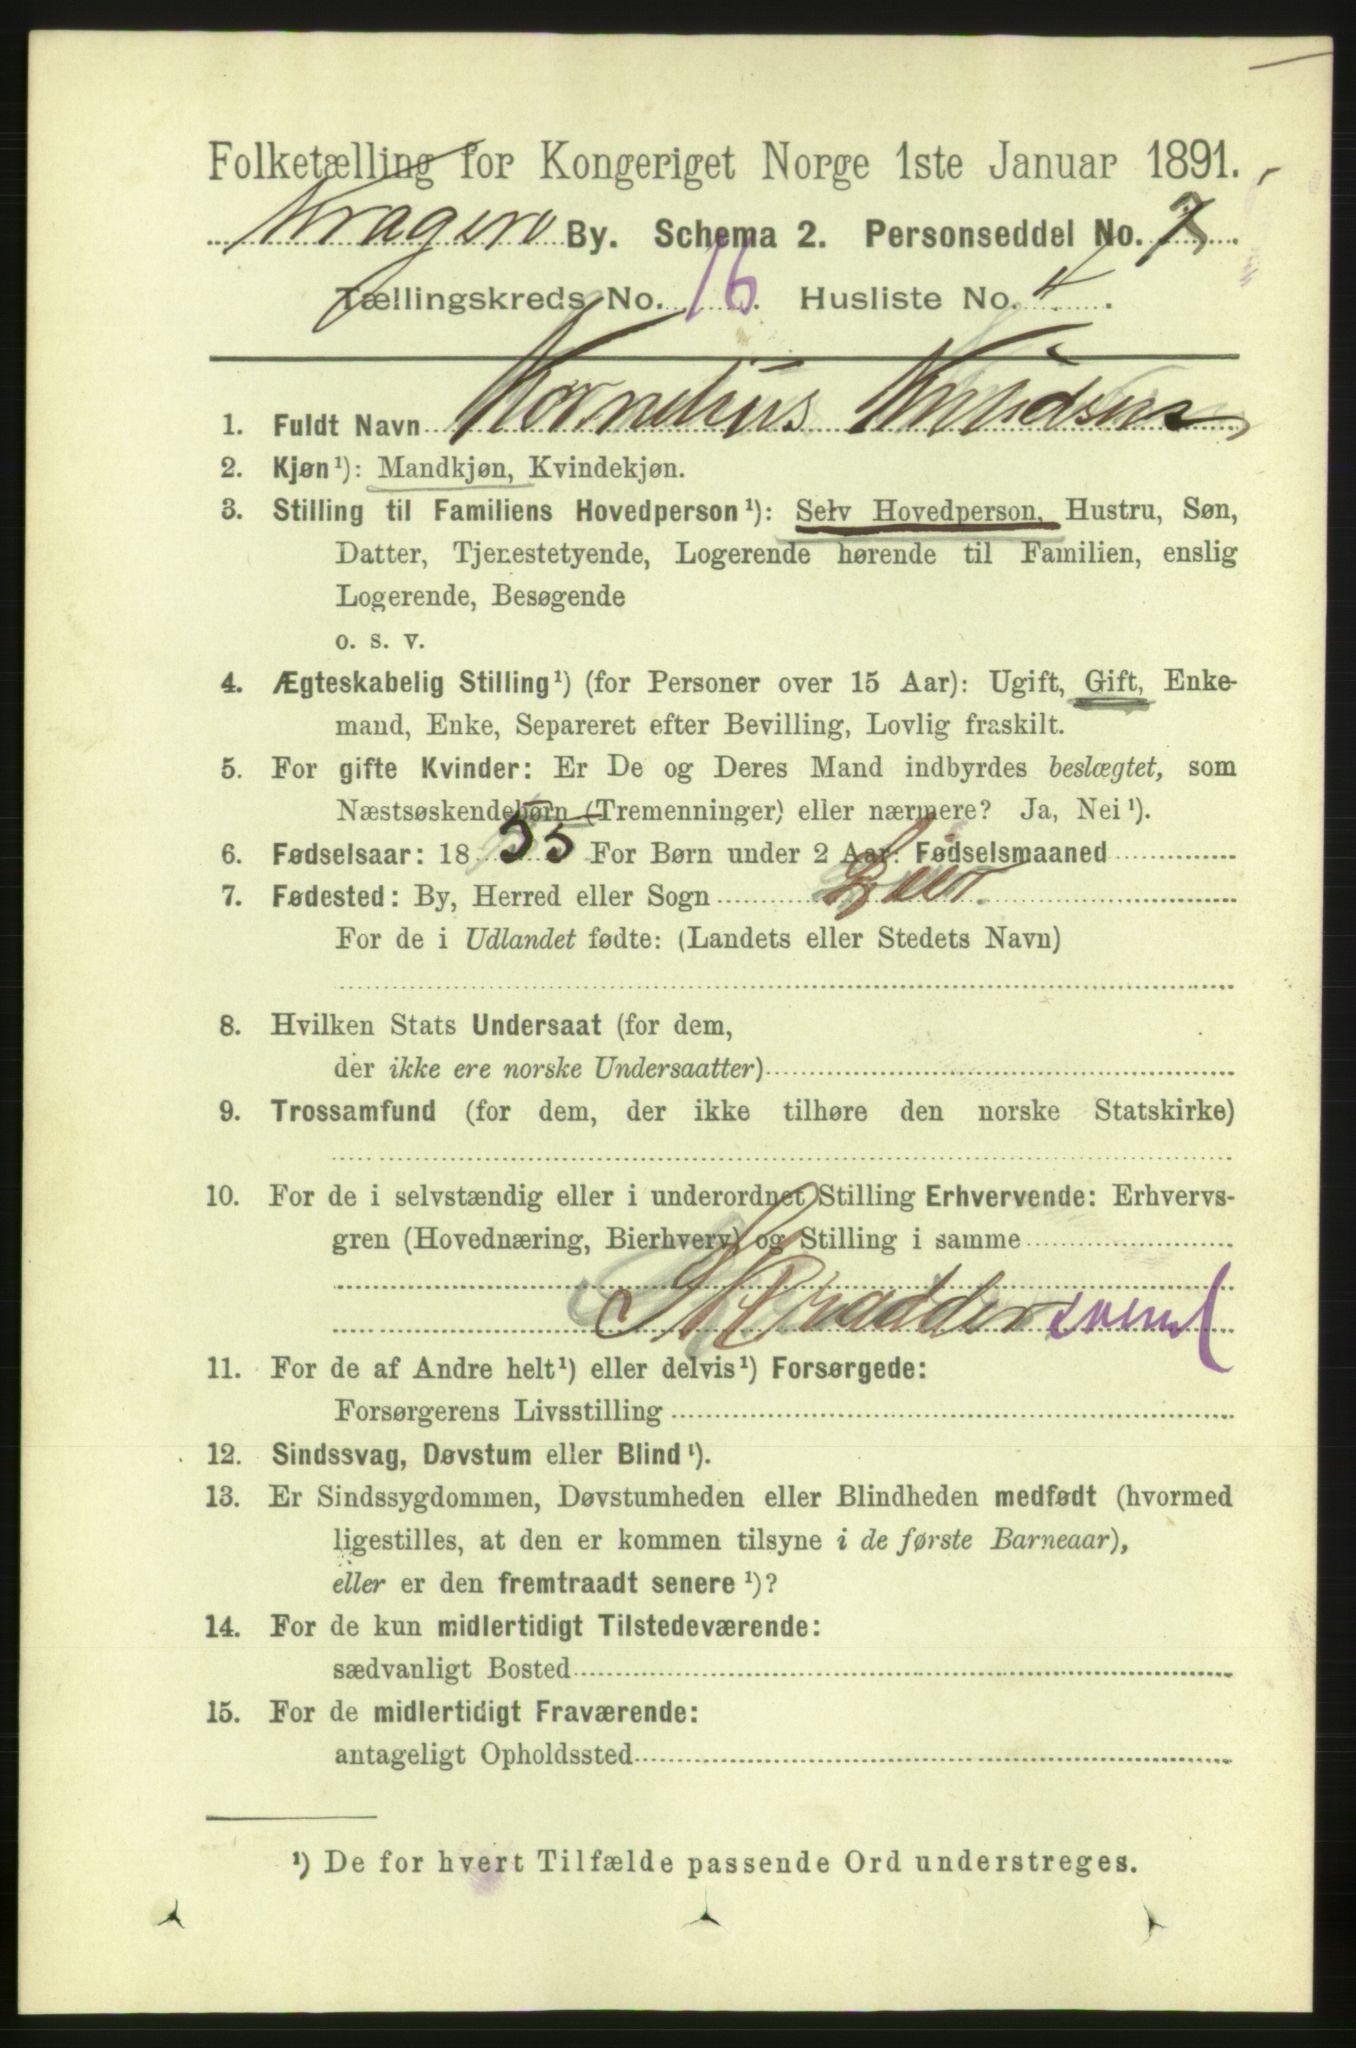 Folketælling for Kongeriget Norge 1ste Januar 1891.
Kragerø By. Schema 2. Personseddel No. 7.
Tællingskreds No. 16. Husliste No. 4.
1. Fuldt Navn Kornelius Knudsen
2. Kjøn¹): Mandkjøn, Kvindekjøn.
3. Stilling til Familiens Hovedperson¹): Selv Hovedperson, Hustru, Søn,
Datter, Tjenestetyende, Logerende hørende til Familien, enslig
Logerende, Besøgende
o. s. v.
4. Ægteskabelig Stilling¹) (for Personer over 15 Aar): Ugift, Gift, Enke-
mand, Enke, Separeret efter Bevilling, Lovlig fraskilt.
5. For gifte Kvinder: Er De og Deres Mand indbyrdes beslægtet, som
Næstsøskendebørn (Tremenninger) eller nærmere? Ja, Nei¹).
6. Fødselsaar: 1855 For Børn under 2 Aar: Fødselsmaaned
7. Fødested: By, Herred eller Sogn Lier.
For de i Udlandet fødte: (Landets eller Stedets Navn)
8. Hvilken Stats Undersaat (for dem,
der ikke ere norske Undersaatter)
9. Trossamfund (for dem, der ikke tilhøre den norske Statskirke)
10. For de i selvstændig eller i underordnet Stilling Erhvervende: Erhvervs-
gren (Hovednæring, Bierhverv) og Stilling i samme
Skræddersvend
11. For de af Andre helt¹) eller delvis¹) Forsørgede:
Forsørgerens Livsstilling
12. Sindssvag, Døvstum eller Blind¹).
13. Er Sindssygdommen, Døvstumheden eller Blindheden medfødt (hvormed
ligestilles, at den er kommen tilsyne i de første Barneaar),
eller er den fremtraadt senere¹)?
14. For de kun midlertidigt Tilstedeværende:
sædvanligt Bosted
15. For de midlertidigt Fraværende:
antageligt Opholdssted
¹) De for hvert Tilfælde passende Ord understreges.